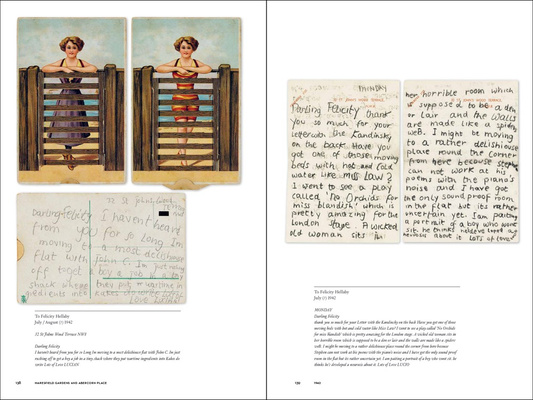 33 St John's Wood
Darling Felicity I haven't heard
from you for so long Im
moving to a most delishiouse
flat with John C. Im just rushing
off to get a bun in a
shack where they put wartime in
gredients into
cakes do write lots of
Love LUCIAN
To Felicity Hellaby
July / August (?) 1942
Darling Felicity
I haven't heard from you for is a long Im moving to a most delishiouse flat with John C. Im just
rushing off to get a in a tiny shack where they put wartime ingredients into Kakes do
write Lots of Love LUCIAN
138
MARESFIELD GARDENS AND ABERCORN PLACE
MONDAY
Darling Felicity thank
you so much for your
letter with the Kandinsky
on the back Have you
got one of those moving
beds with hot and cold
water like miss law?
I went to see a play
called 'No Orchids for
miss blandish' which is
pretty amazing for the
London stage. A wicked
old woman sits in
her horrible room which
is supposed to be a den
or lair and the walls
are made like a spiders
web. I might be moving
to a rather delishiouse
place round the corner
from here because Stephen
can not work at his
poems with the piano's
noise and I have got
the only sound proof room
in the flat but its rather
uncertain yet. I am painting
a portrait of a boy who wont
sit. he thinks
nervous about it Lots of love
To Felicity Hellaby
July (?) 1942
MONDAY
Darling Felicity
thank you so much for your Letter with the Kandinsky on the back Have you got one of those
moving beds with hot and cold water like Miss Law? I went to see a play called 'No Orchids
for miss blandish' which is pretty amazing for the London stage. A wicked old woman sits in
her horrible room which is supposed to be a den or lair and the walls are made like a spiders
web. I might be moving to a rather delishiouse place round the corner from here because
Stephen can not work at his poems with the piano's noise and I have got the only sound proof
room in the flat but its rather uncertain yet. I am painting a portrait of a boy who wont sit. he
thinks he's developed a neurosis about it. Lots of love LUCIAN
139
1942